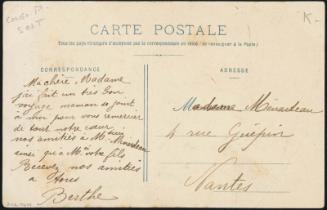 K-
CARTE POSTALE
Tous les pays étrangers n'acceptent pas la correspondance au recto. (Se renseigner à la Poste)
CORRESPONDANCE
ADRESSE
Ma chère Madame
j'ai fait un très bon
voyage maman se joint
à moi pour vous remercier
de tout notre cœur
nos amitiés à Mr
ainsi qu'à Mr votre fils
Recevez nos amitiés
à tous
Berthe
Madame Ménardeau
4 rue Guépin
Nantes